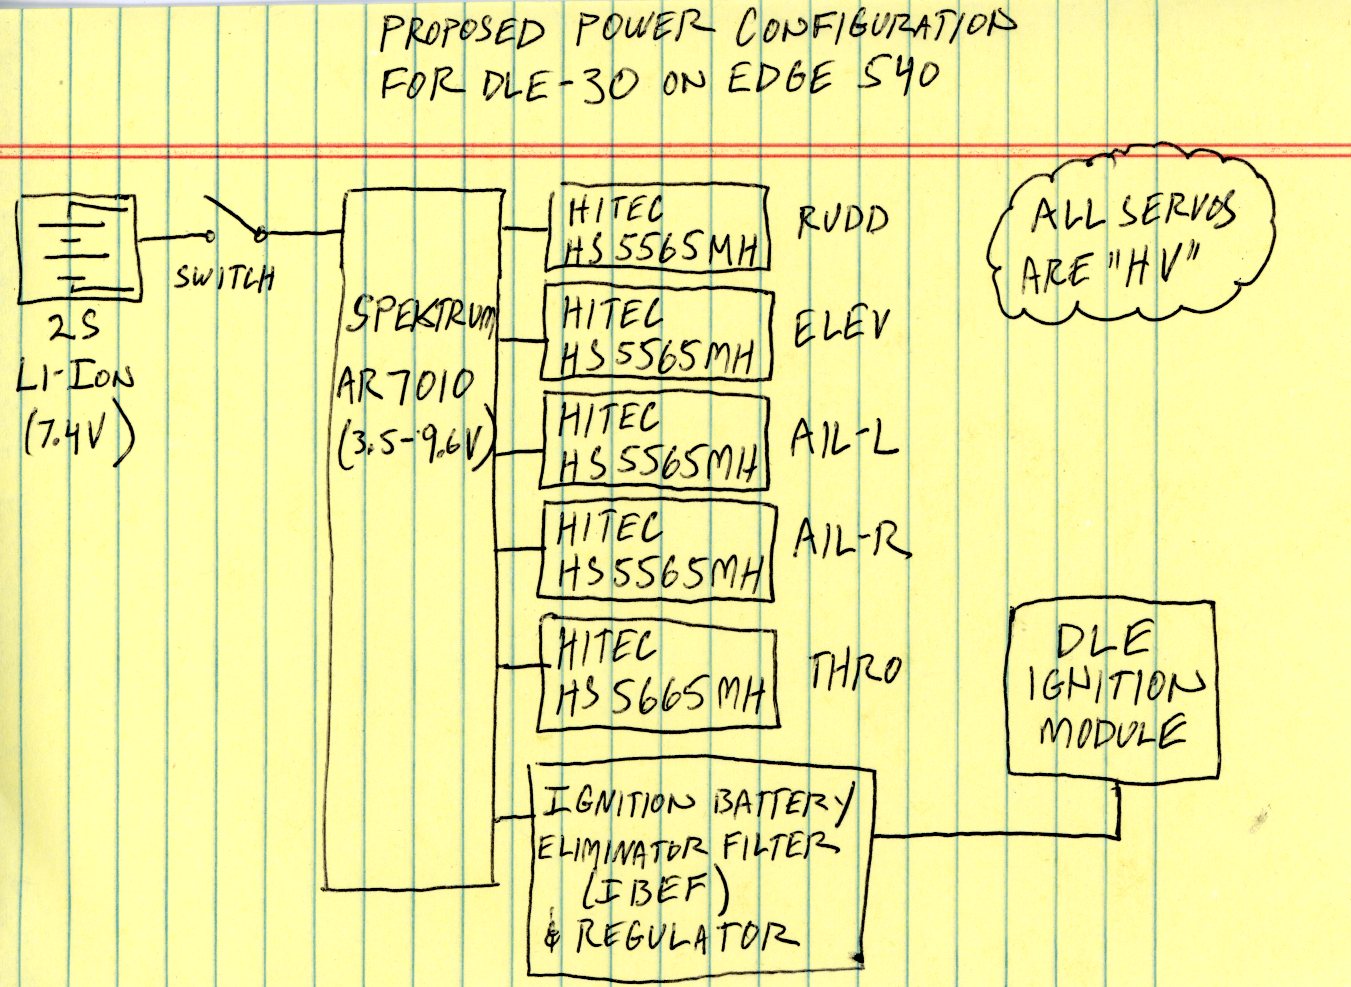 PROPOSED POWER CONFIGURATION
FOR DLE-30 ON EDGE 540
ALL SERVOS
ARE "HV"
2S
LI-ION
(7.4V)
SWITCH
SPEKTRUM
AR7010
(3.5-9.6V)
HITEC
HS5565MH
RUDD
HITEC
HS5565MH
ELEV
HITEC
HS5565MH
AIL-L
HITEC
HS5565MH
AIL-R
HITEC
HS5665MH
THRO
IGNITION BATTERY
ELIMINATOR FILTER
(IBEF)
& REGULATOR
DLE
IGNITION
MODULE